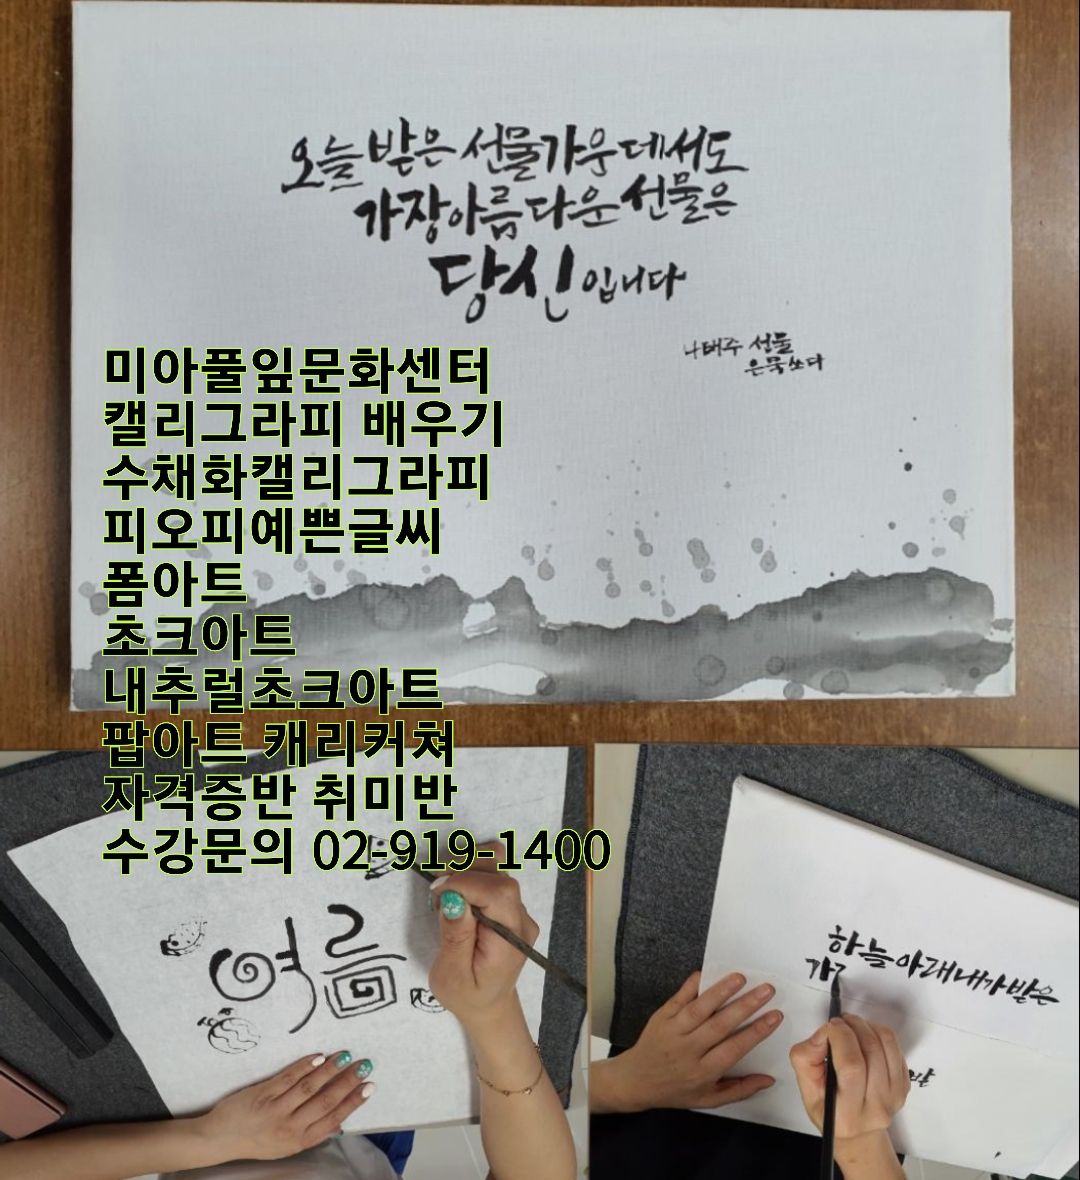 오늘 받은 선물 가운데서도
가장 아름다운 선물은
당신입니다
나태주 선물
은묵쓰다
미아풀잎문화센터
캘리그라피 배우기
수채화캘리그라피
피오피예쁜글씨
폼아트
초크아트
내추럴초크아트
팝아트 캐리커쳐
자격증반 취미반
수강문의 02-919-1400
여름
하늘 아래 내가 받은
가